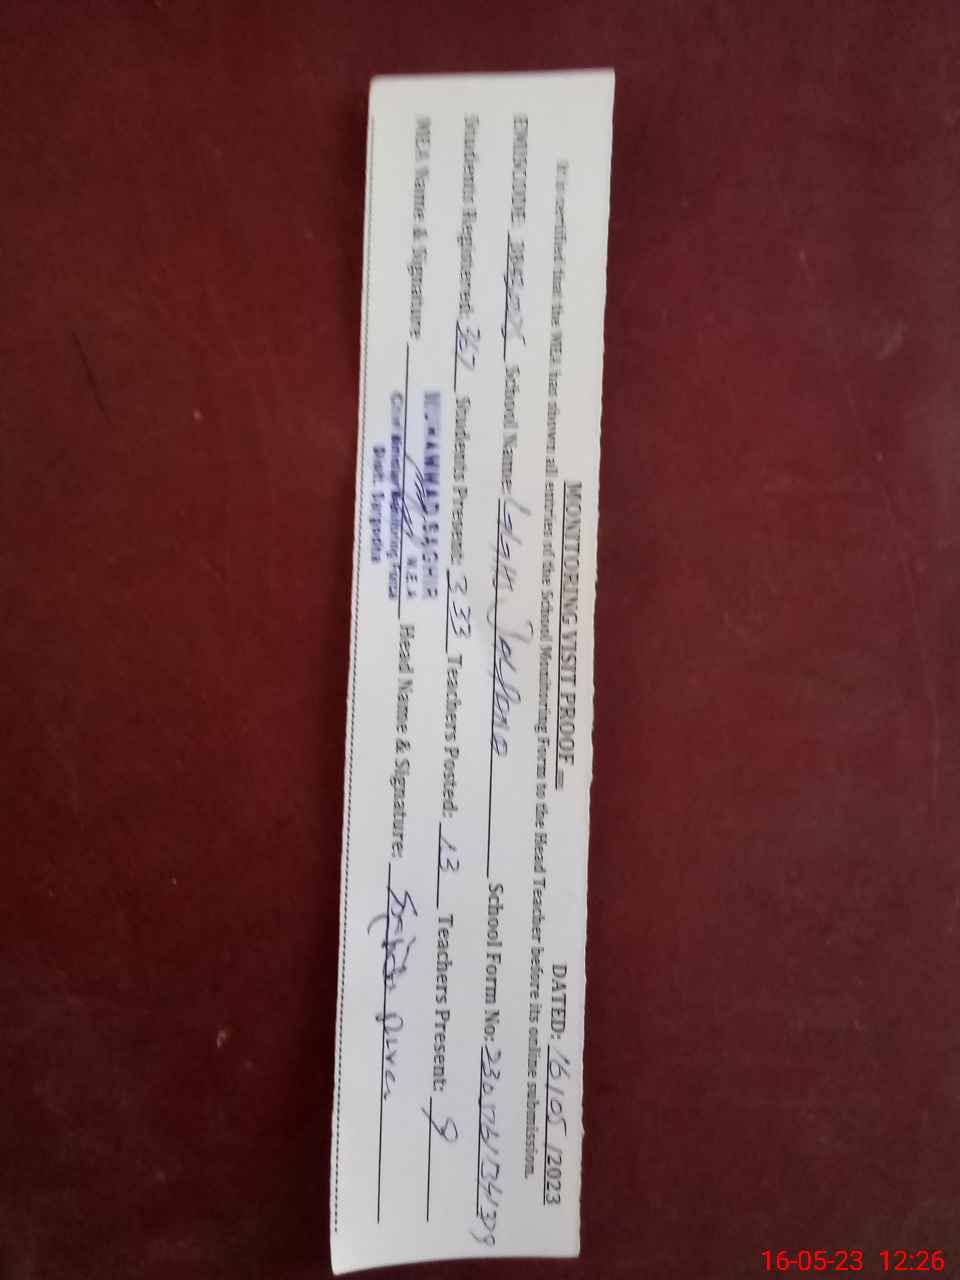 MONITORING VISIT PROOF DATED: 16/05/2023
It is certified that the MEA has shown all entries of the School Monitoring Form to the Head Teacher before its online submission.
EMISCODE School Name: School Form No:
Students Registered: 367 Students Present: 333 Teachers Posted: 13 Teachers Present: 9
MEA Name & Signature Head Name & Signature:
MUHAMMAD SAGHIR
M.E.A
Chief Minister Monitoring Force
Distt. Sargodha
16-05-23 12:26